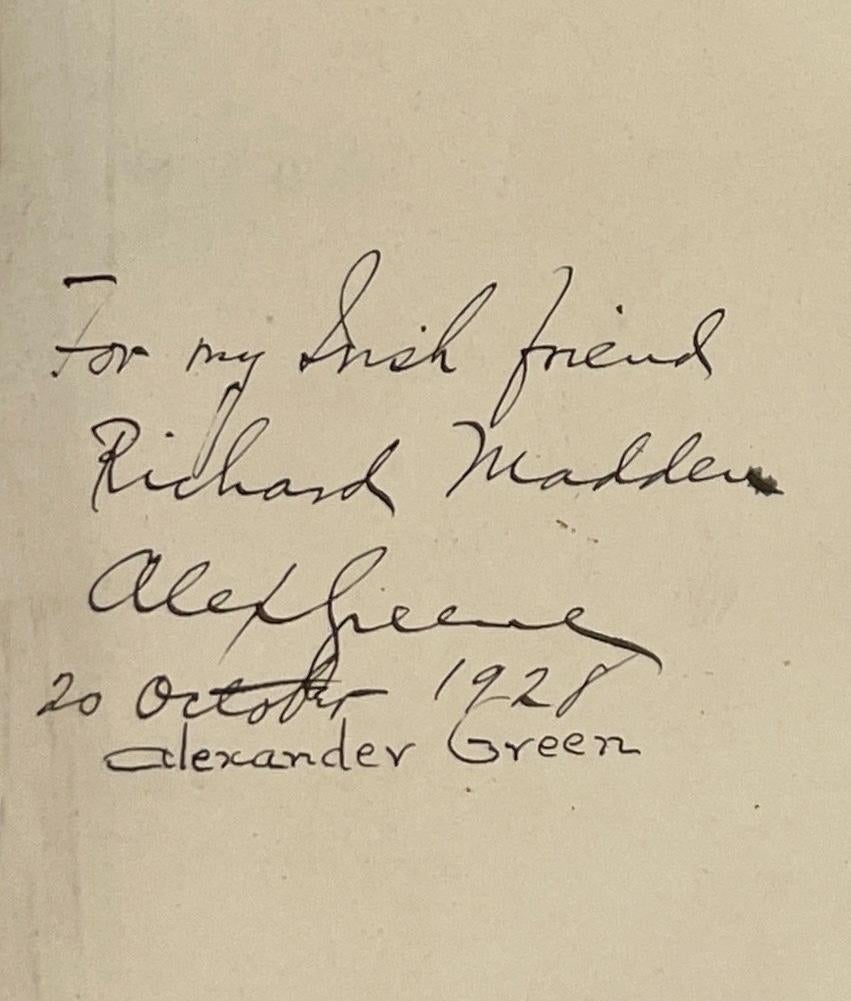 For my Irish friend
Richard Madden
Alex Greene
20 October 1928
Alexander Green